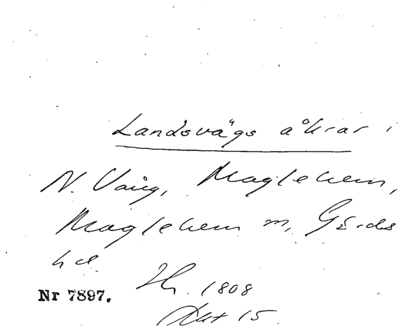 Landsvägs åkrar i
N. Vång, Maglehem,
Maglehem sn, Gärds
hd.
Nr 7897. Hr. 1808
Akt 15.